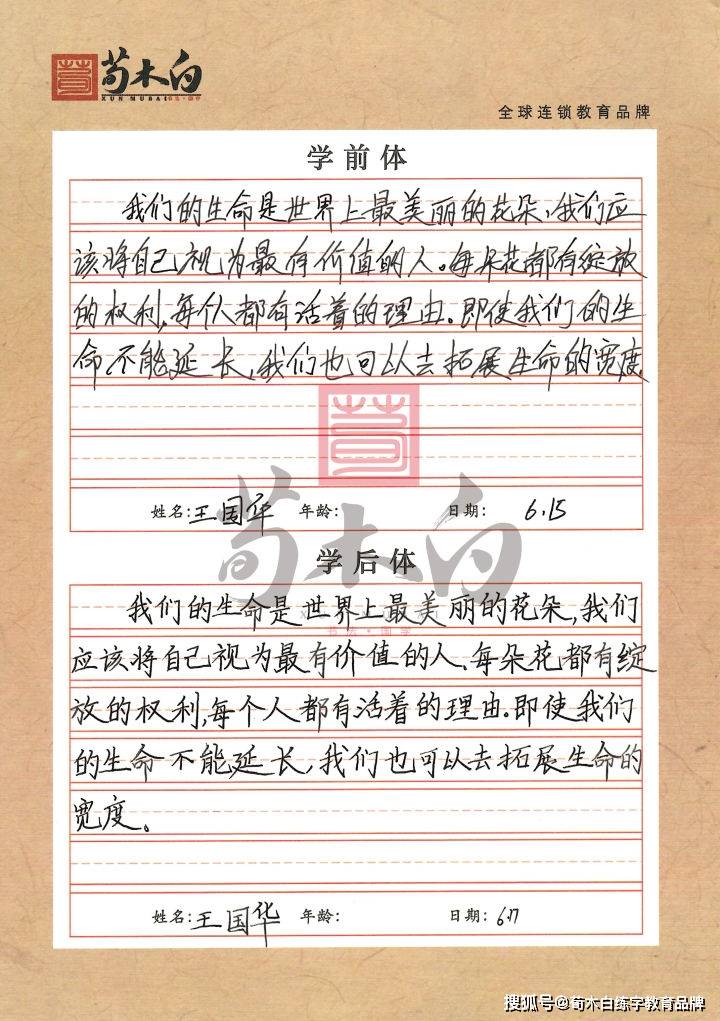 荀木白
XUN MUBAI
全球连锁教育品牌
学前体
我们的生命是世界上最美丽的花朵,我们应
该将自己视为最有价值的人。每朵花都有绽放
的权利,每个人都有活着的理由。即使我们的生
命不能延长,我们也可以去拓展生命的宽度
姓名:王国华 年龄: 日期: 6.15
荀木白
学后体
我们的生命是世界上最美丽的花朵,我们
应该将自己视为最有价值的人,每朵花都有绽
放的权利,每个人都有活着的理由.即使我们
的生命不能延长,我们也可以去拓展生命的
宽度。
姓名:王国华 年龄: 日期: 6.17
搜狐号@荀木白练字教育品牌